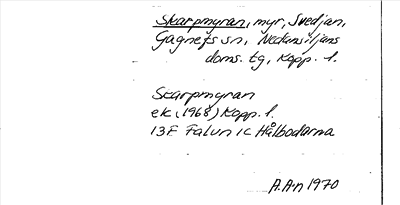 Skarpmyran, myr, Svedjan,
Gagnefs sn, Nedansiljans
doms. tg, Kopp. l.
Skarpmyran
ek (1968) Kopp. l.
13F Falun 1c Hålbodarna
A.An 1970